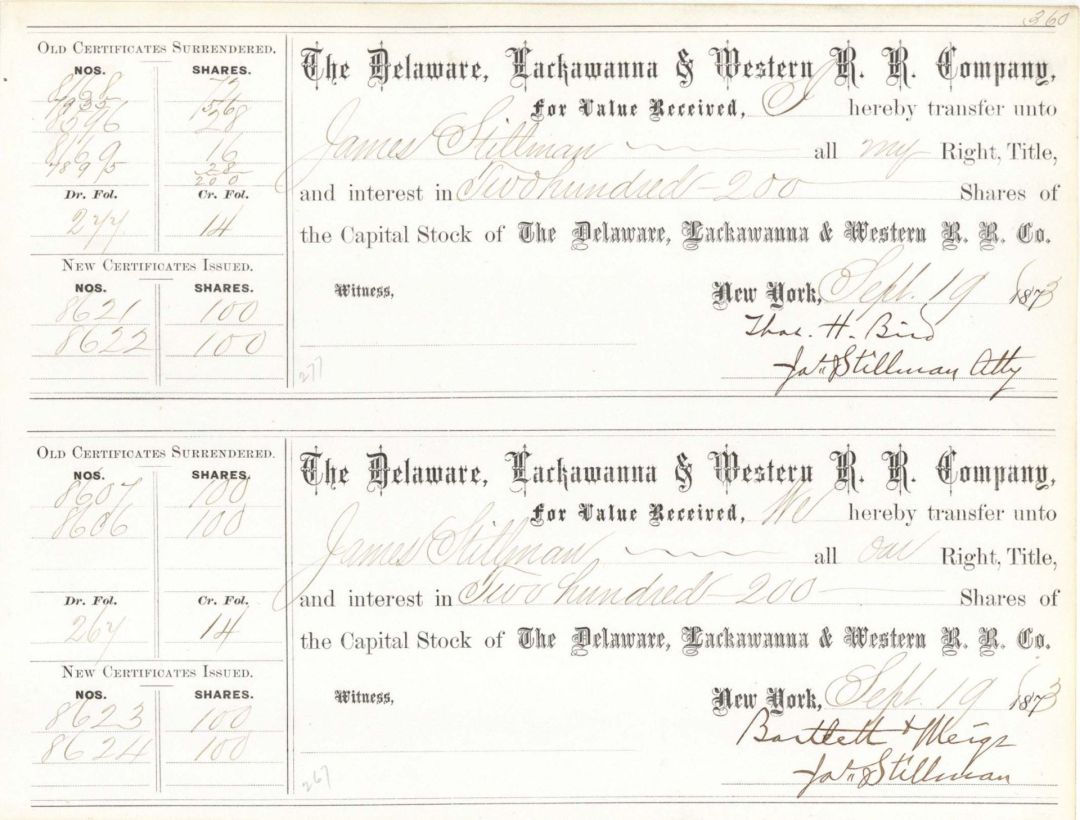 360
OLD CERTIFICATES SURRENDERED.
NOS. SHARES.
8168 72
7935 56
8596 28
8169 16
7895 28
200
Dr. Fol. Cr. Fol.
277 14
NEW CERTIFICATES ISSUED.
NOS. SHARES.
8621 100
8622 100
The Delaware, Lackawanna & Western R. R. Company,
For Value Received, I hereby transfer unto
James Stillman all my Right, Title,
and interest in Two hundred - 200 Shares of
the Capital Stock of The Delaware, Lackawanna & Western R. R. Co.
Witness, New York, Sept. 19 1873
Thos. H. Bird
277 Jas Stillman Atty
OLD CERTIFICATES SURRENDERED.
NOS. SHARES.
8607 100
8606 100
Dr. Fol. Cr. Fol.
267 14
NEW CERTIFICATES ISSUED.
NOS. SHARES.
8623 100
8624 100
The Delaware, Lackawanna & Western R. R. Company,
For Value Received, We hereby transfer unto
James Stillman all our Right, Title,
and interest in Two hundred - 200 Shares of
the Capital Stock of The Delaware, Lackawanna & Western R. R. Co.
Witness, New York, Sept. 19 1873
Bartlett & Meigs
267 Jas Stillman